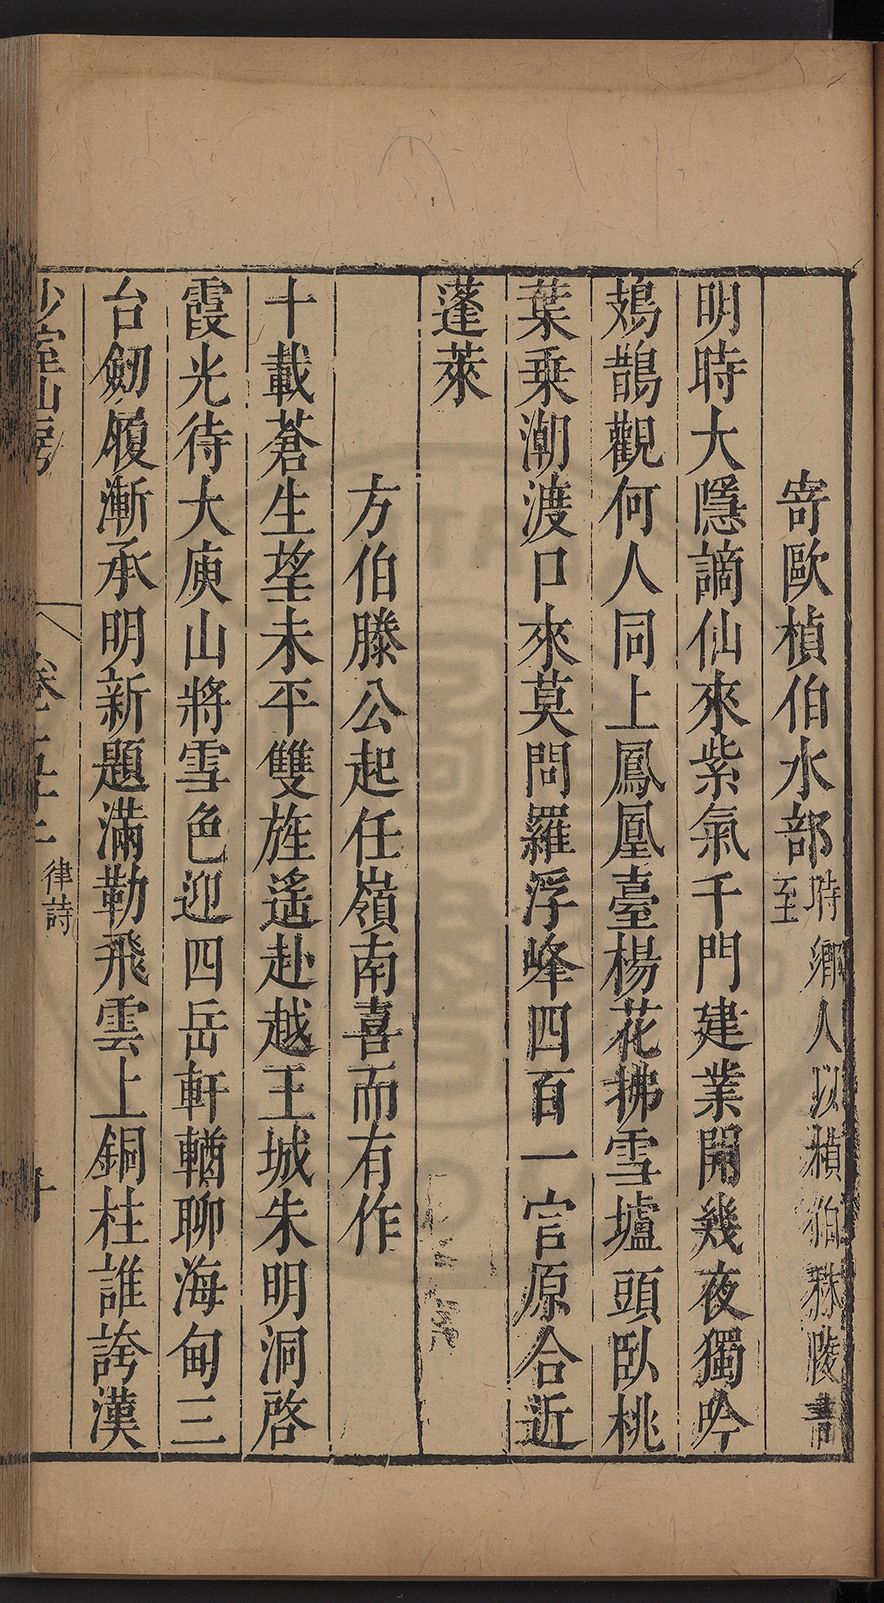 寄歐楨伯水部時鄉人以楨伯秣陵書至
明時大隱謫仙來紫氣千門建業開幾夜獨吟
鳷鵲觀何人同上鳳凰臺楊花拂雪壚頭臥桃
葉乗潮渡口來莫問羅浮峰四百一官原合近
蓬萊
方伯滕公起任嶺南喜而有作
十載蒼生望未平雙旌遙赴越王城朱明洞啓
霞光待大庾山將雪色迎四岳軒輶聊海甸三
台劒履漸承明新題滿勒飛雲上銅柱誰誇漢
少室山房
律詩